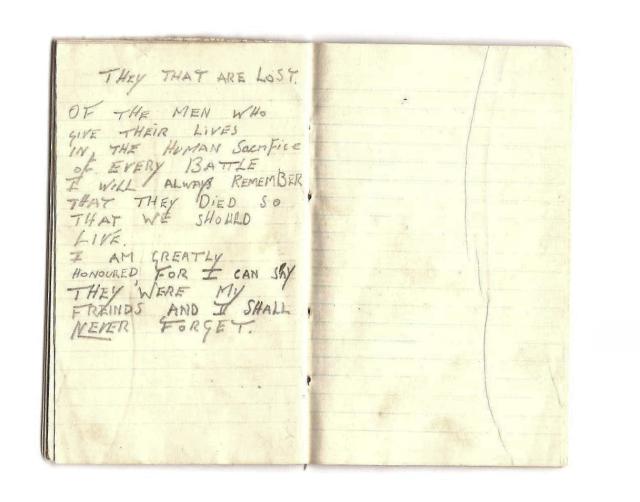 THEY THAT ARE LOST.
OF THE MEN WHO
GIVE THEIR LIVES
IN, THE HUMAN SACRIFICE
OF EVERY BATTLE
I WILL ALWAYS REMEMBER
THAT THEY DIED SO
THAT WE SHOULD
LIVE.
I AM GREATLY
HONOURED, FOR I CAN SAY
THEY WERE MY
FREINDS AND I SHALL
NEVER FORGET.